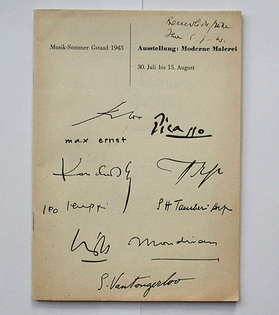 Musik-Sommer Gstaad 1943
Ausstellung: Moderne Malerei
30. Juli bis 15. August
Klee
Picasso
max ernst
Kandinsky
Arp
leo leuppi
S H Taeuber-Arp
Mondrian
G. Vantongerloo